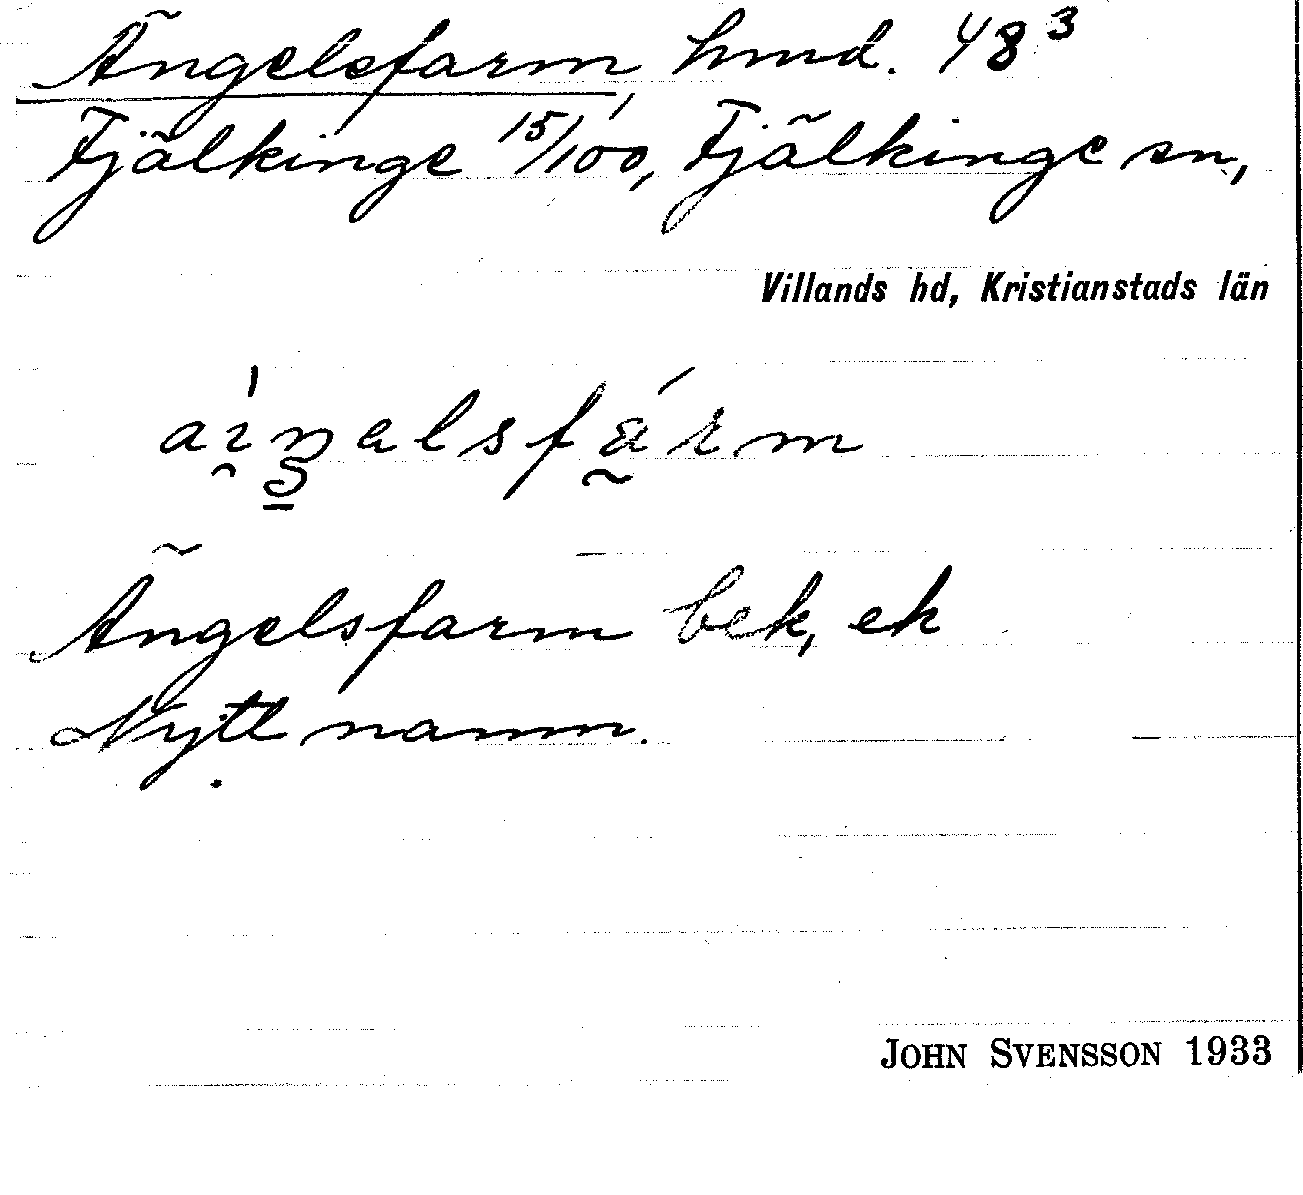 Ängelsfarm, hmd. 48³
Fjälkinge 15/100, Fjälkinge sn,
Villands hd, Kristianstads län
Ängelsfarm bek, ek
Nytt namn.
JOHN SVENSSON 1933